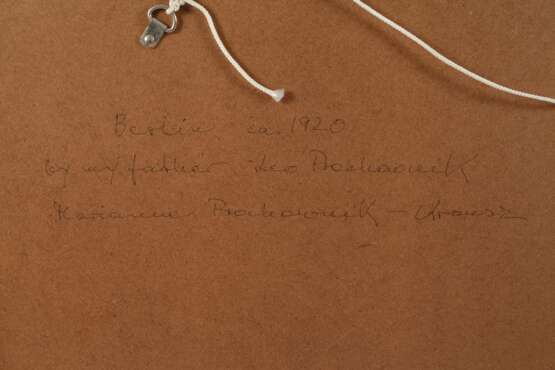 Berlin ca. 1920
by my father Leo Prochownik
Marianne Prochownik - Krausz